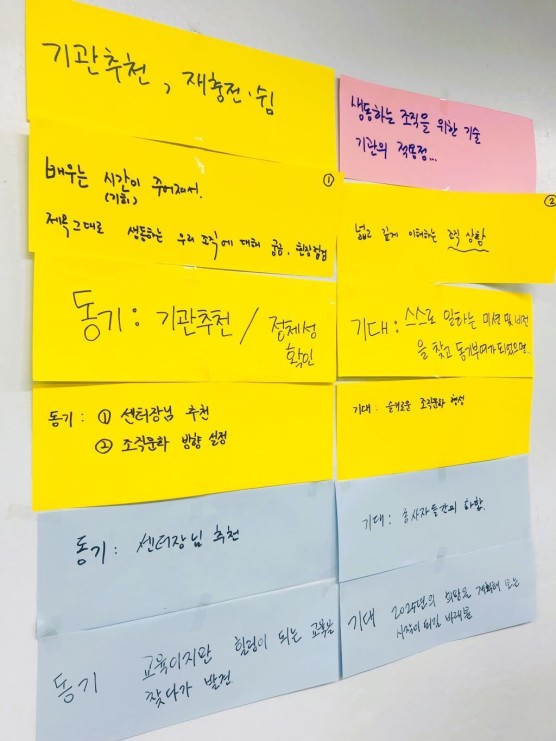 기관추천, 재충전·쉼
생동하는 조직을 위한 기술
기관의 적용점...
①
배우는 시간이 주어져서.
(기회)
제목그대로 생동하는 우리 조직에 대해 궁금, 현장점검
②
넓고 깊게 이해하는 조직 상황
동기: 기관추천 / 정체성
확인
기대: 스스로 일하는 미션 및 비전
을 찾고 동기부여가 되었으면..
동기: ① 센터장님 추천
② 조직문화 방향 설정
기대: 슬기로운 조직문화 형성
동기: 센터장님 추천
기대: 종사자들간의 화합.
동기 교육이지만 힐링이 되는 교육을
찾다가 발견
기대 2025년의 희망을 계획해 보는
시작이 되길 바래봄